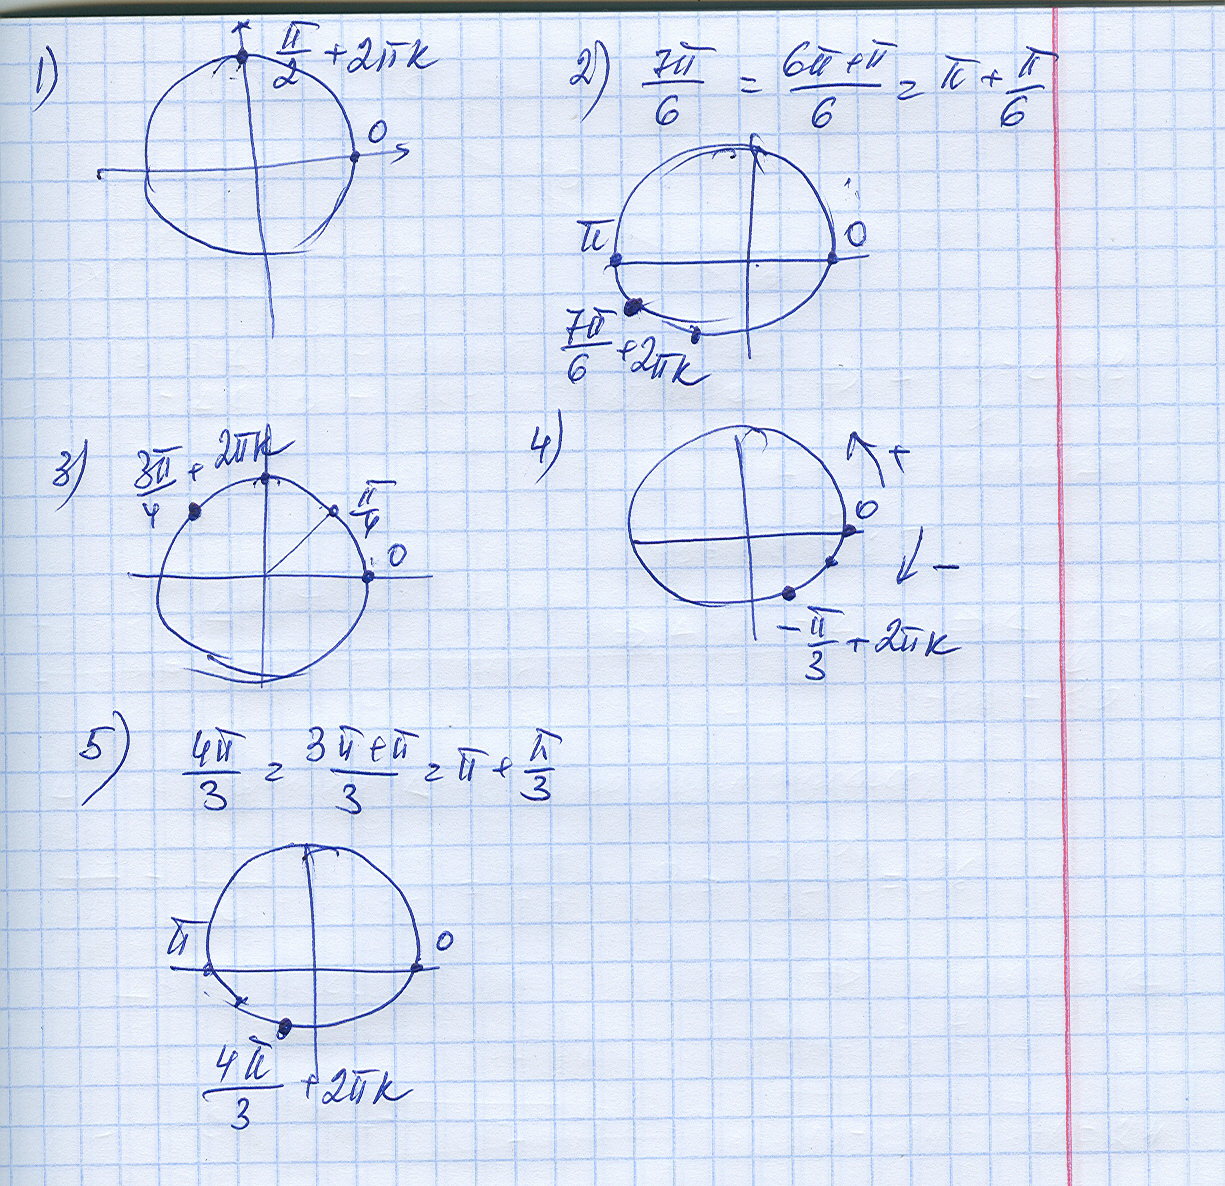 1)
π/2 + 2πk
0
2) 7π/6 = (6π+π)/6 = π + π/6
π
0
7π/6 + 2πk
3)
3π/4 + 2πk
π/4
0
4)
+
0
−
−π/3 + 2πk
5) 4π/3 = (3π+π)/3 = π + π/3
π
0
4π/3 + 2πk